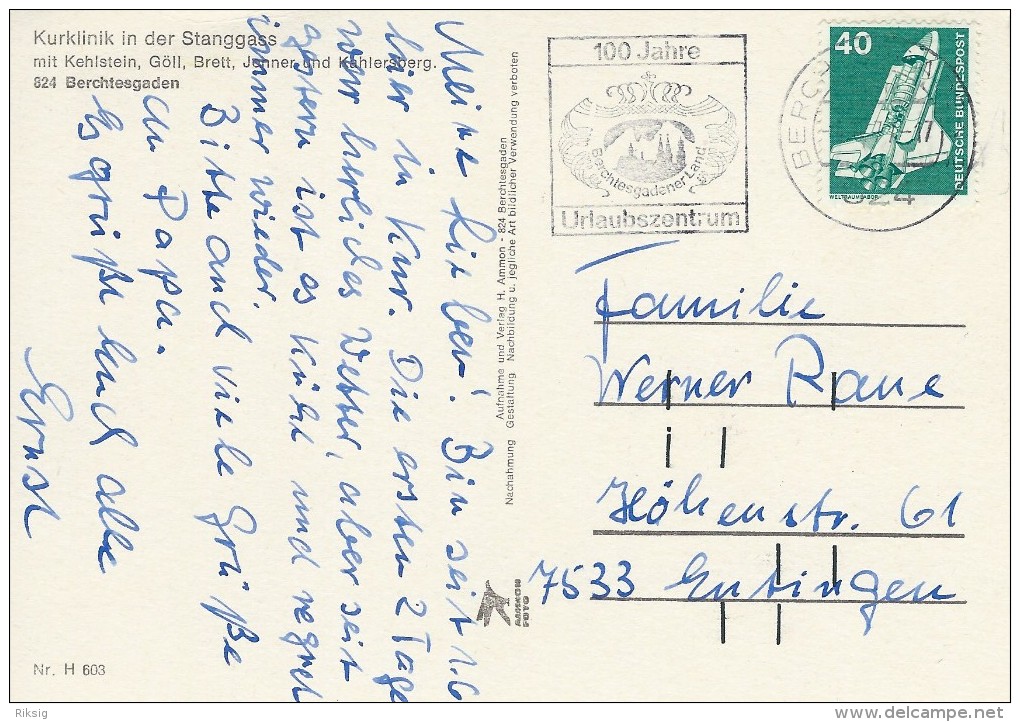 Kurklinik in der Stanggass
mit Kehlstein, Göll, Brett, Jenner und Kahlersberg.
824 Berchtesgaden
Meine Lieben! Bin seit 1.6
hier in Kur. Die ersten 2 Tage
war herrliches Wetter, aber seit
gestern ist es kühl und regnet
immer wieder.
Bitte auch viele Grüße
an Papa.
Es grüßt Euch alle
Ernst
Nr. H 603
Aufnahme und Verlag H. Ammon - 824 Berchtesgaden
Nachahmung Gestaltung Nachbildung u. jegliche Art bildlicher Verwendung verboten
AMMON
FOTO
100 Jahre
Berchtesgadener Land
Urlaubszentrum
BERC
824
40
DEUTSCHE BUNDESPOST
WELTRAUMLABOR
Familie
Werner Raue
Höhenstr. 61
7533
Riksig
delcampe.net